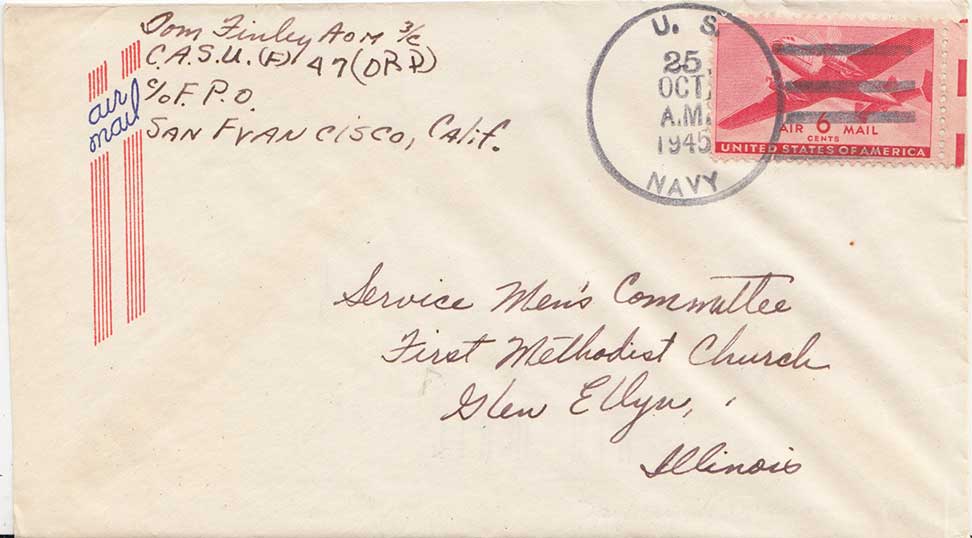 Tom Finley AOM 3/c
C.A.S.U. (F) 47 (DRP)
c/o F. P. O.
San Francisco, Calif.
air
mail
U. S.
25
OCT
A.M.
1945
NAVY
AIR 6 MAIL
CENTS
UNITED STATES OF AMERICA
Service Men's Committee
First Methodist Church
Glen Ellyn,
Illinois